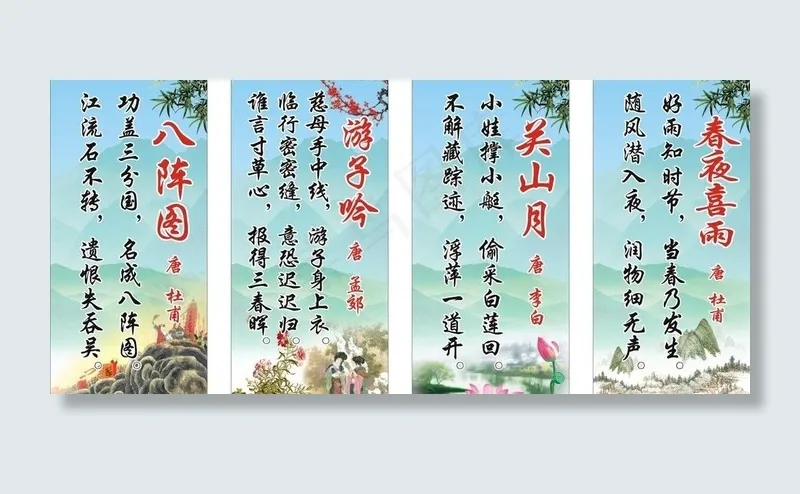 八阵图
唐 杜甫
功盖三分国，名成八阵图。
江流石不转，遗恨失吞吴。
游子吟
唐 孟郊
慈母手中线，游子身上衣。
临行密密缝，意恐迟迟归。
谁言寸草心，报得三春晖。
关山月
唐 李白
小娃撑小艇，偷采白莲回
不解藏踪迹，浮萍一道开
春夜喜雨
唐 杜甫
好雨知时节，当春乃发生。
随风潜入夜，润物细无声。